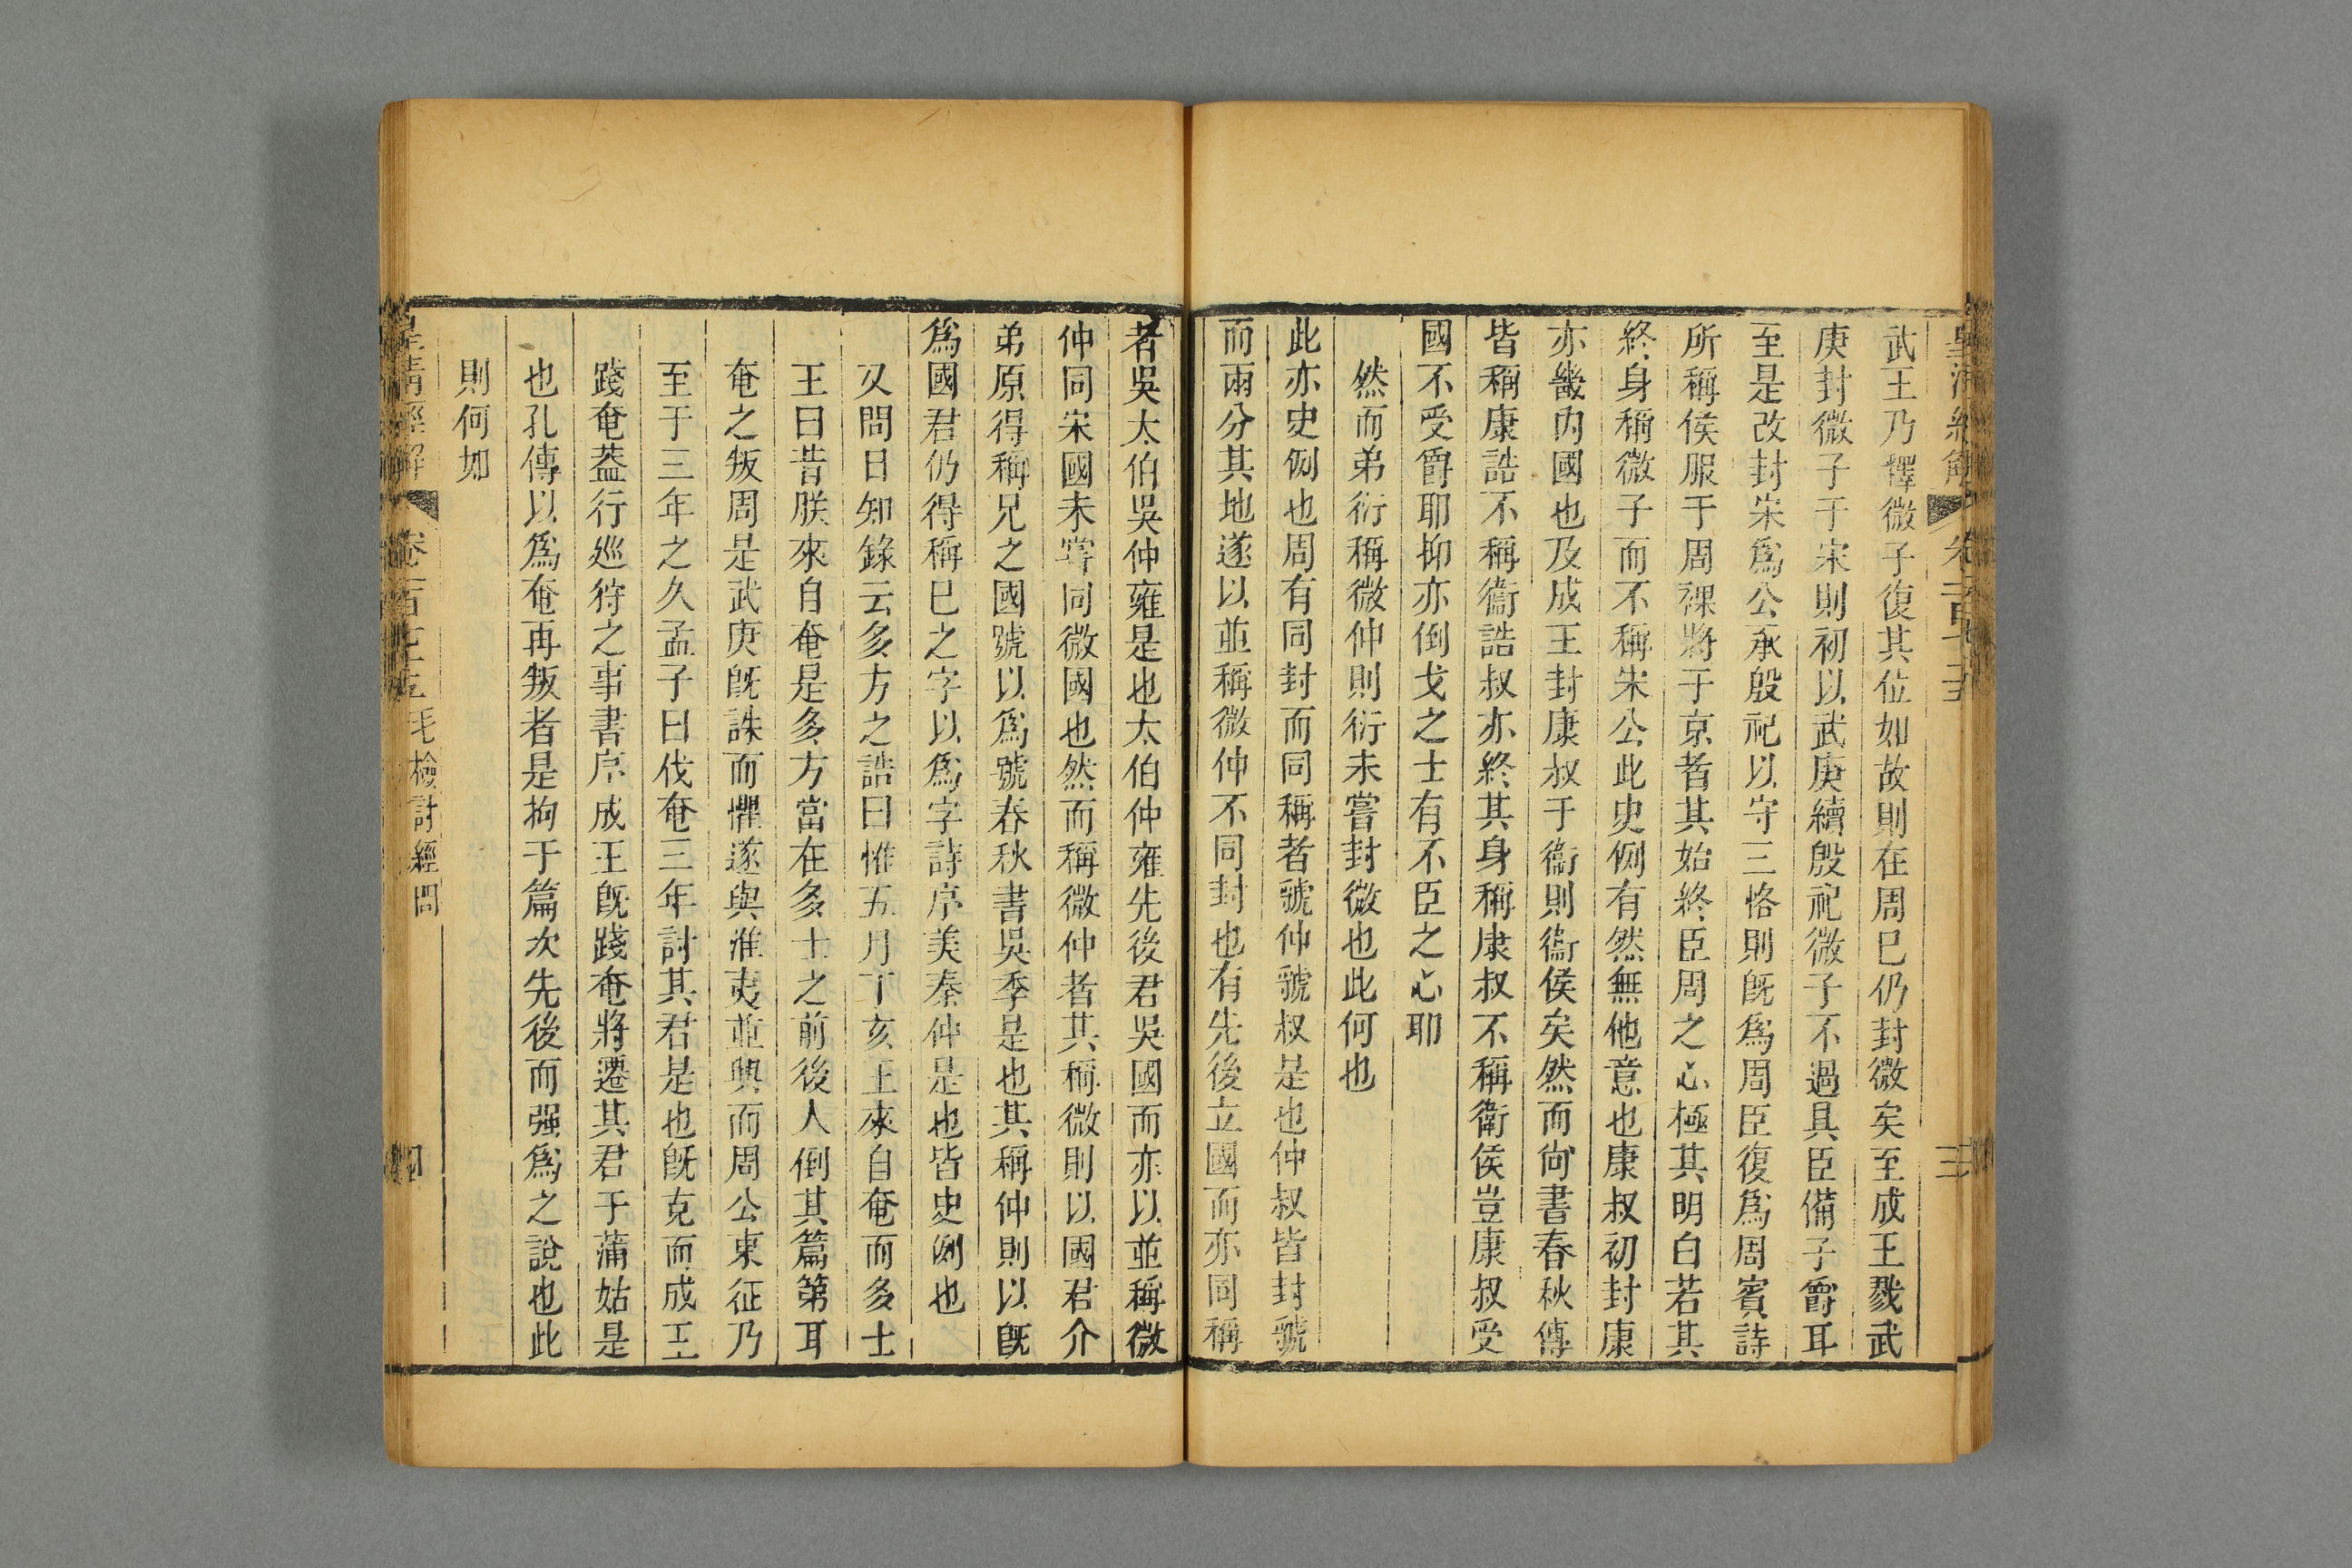 武王乃釋微子復其位如故則在周巳仍封微矣至成王戮武
庚封微子于宋則初以武庚續殷祀微子不過具臣備子爵耳
至是改封宋爲公承殷祀以守三恪則旣爲周臣復爲周賓詩
所稱侯服于周祼將于京者其始終臣周之心極其明白若其
終身稱微子而不稱宋公此史例有然無他意也康叔初封康
亦畿內國也及成王封康叔于衞則衞侯矣然而尙書春秋傳
皆稱康誥不稱衞誥叔亦終其身稱康叔不稱衛侯豈康叔受
國不受爵耶抑亦倒戈之士有不臣之心耶
然而弟衍稱微仲則衍未嘗封微也此何也
此亦史例也周有同封而同稱者虢仲虢叔是也仲叔皆封虢
而兩分其地遂以並稱微仲不同封也有先後立國而亦同稱
者吳太伯吳仲雍是也太伯仲雍先後君吳國而亦以並稱微
仲同宋國未嘗同微國也然而稱微仲者其稱微則以國君介
弟原得稱兄之國號以爲號春秋書吳季是也其稱仲則以旣
爲國君仍得稱巳之字以爲字詩序美秦仲是也皆史例也
又問日知錄云多方之誥曰惟五月丁亥王來自奄而多士
王曰昔朕來自奄是多方當在多士之前後人倒其篇第耳
奄之叛周是武庚旣誅而懼遂與淮夷並興而周公東征乃
至于三年之久孟子曰伐奄三年討其君是也旣克而成王
踐奄葢行巡狩之事書序成王旣踐奄將遷其君于蒲姑是
也孔傳以爲奄再叛者是拘于篇次先後而强爲之說也此
則何如
皇淸經解
卷一百七十五
毛檢討經問
四